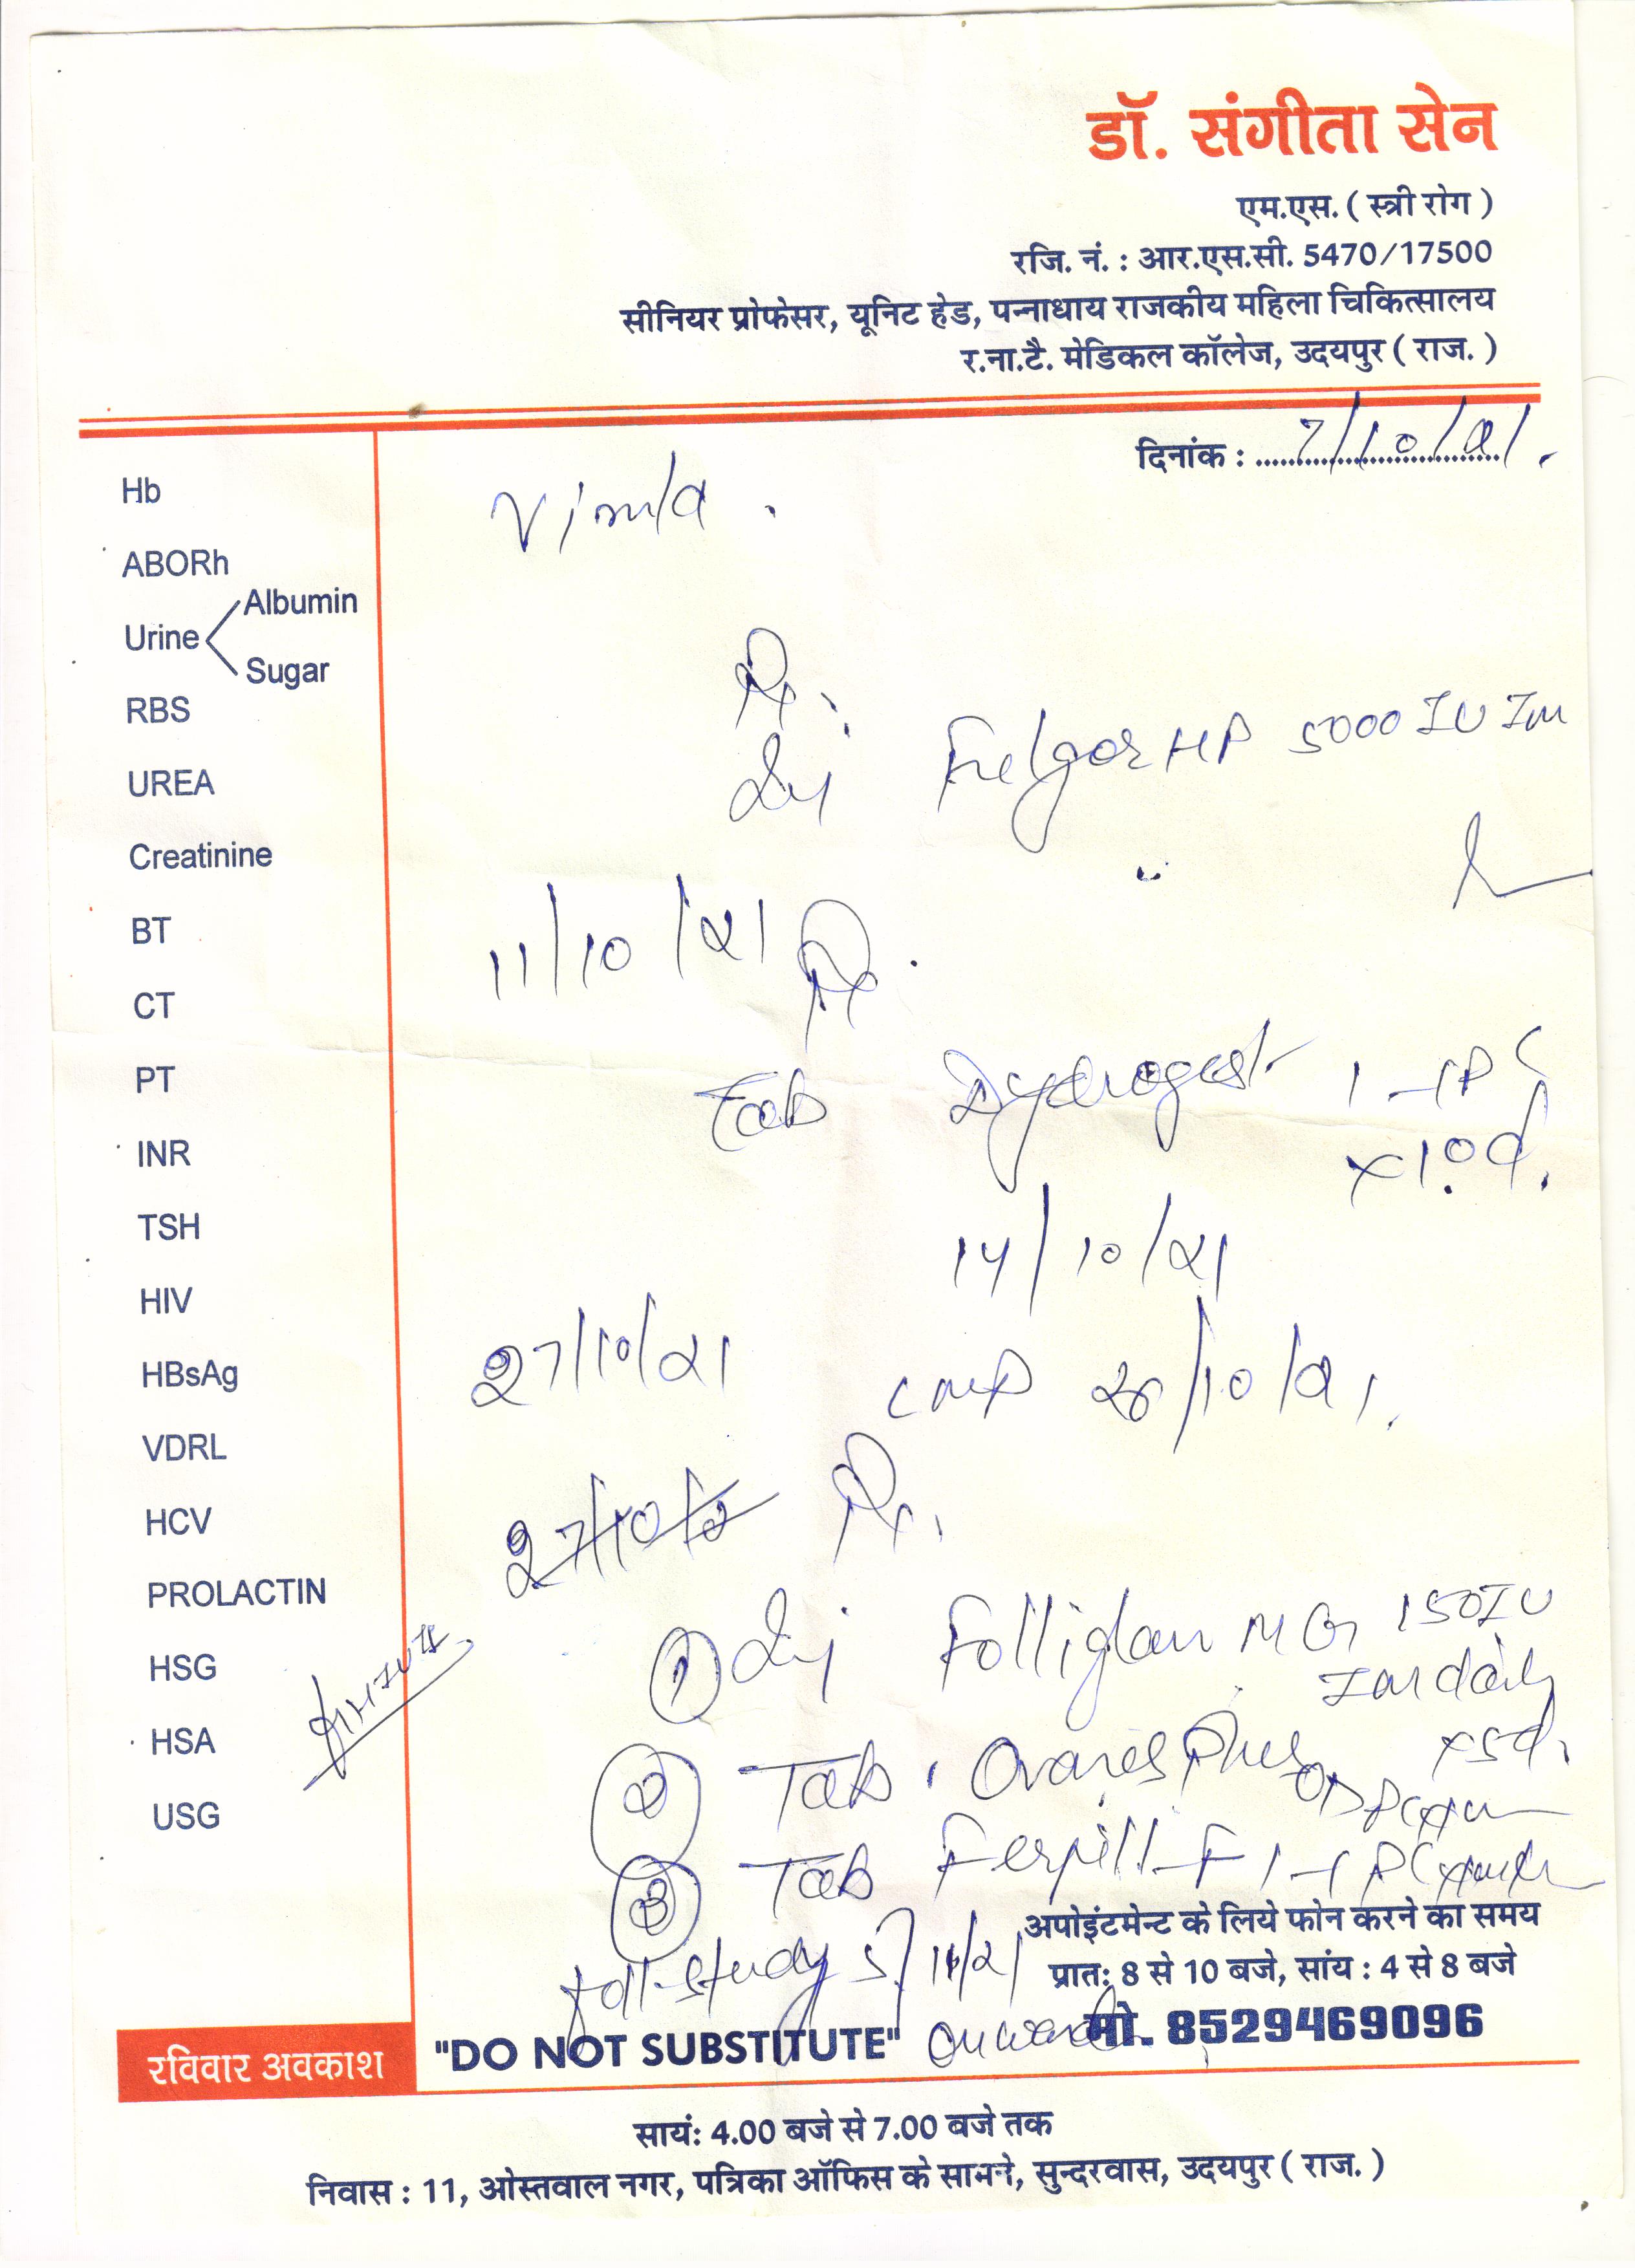 डॉ. संगीता सेन
एम.एस. ( स्त्री रोग )
रजि. नं. : आर.एस.सी. 5470/17500
सीनियर प्रोफेसर, यूनिट हेड, पन्नाधाय राजकीय महिला चिकित्सालय
र.ना.टै. मेडिकल कॉलेज, उदयपुर ( राज. )
दिनांक : 7/10/21.
Hb
Vimla .
ABORh
Albumin
Urine
Sugar
RBS
Rx.
Inj HP 5000 IU Im
UREA
Creatinine
BT
11/10/21 Rx.
CT
PT
Tab Dydrogest 1-1 P C
x10d.
INR
TSH
14/10/21
HIV
27/10/21 LMP 26/10/21.
HBsAg
VDRL
27/10/2 Rx.
HCV
PROLACTIN
① Inj Folliglan MG 150 IU
Im daily
x5d.
HSG
HSA
② Tab. Ovares Plus OD PC
USG
③ Tab Ferpill-F 1-1 PC
Foll-study 5/11/21
onward
अपोइंटमेन्ट के लिये फोन करने का समय
प्रातः 8 से 10 बजे, सांय : 4 से 8 बजे
मो. 8529469096
रविवार अवकाश
"DO NOT SUBSTITUTE"
सायं: 4.00 बजे से 7.00 बजे तक
निवास : 11, ओस्तवाल नगर, पत्रिका ऑफिस के सामने, सुन्दरवास, उदयपुर ( राज. )